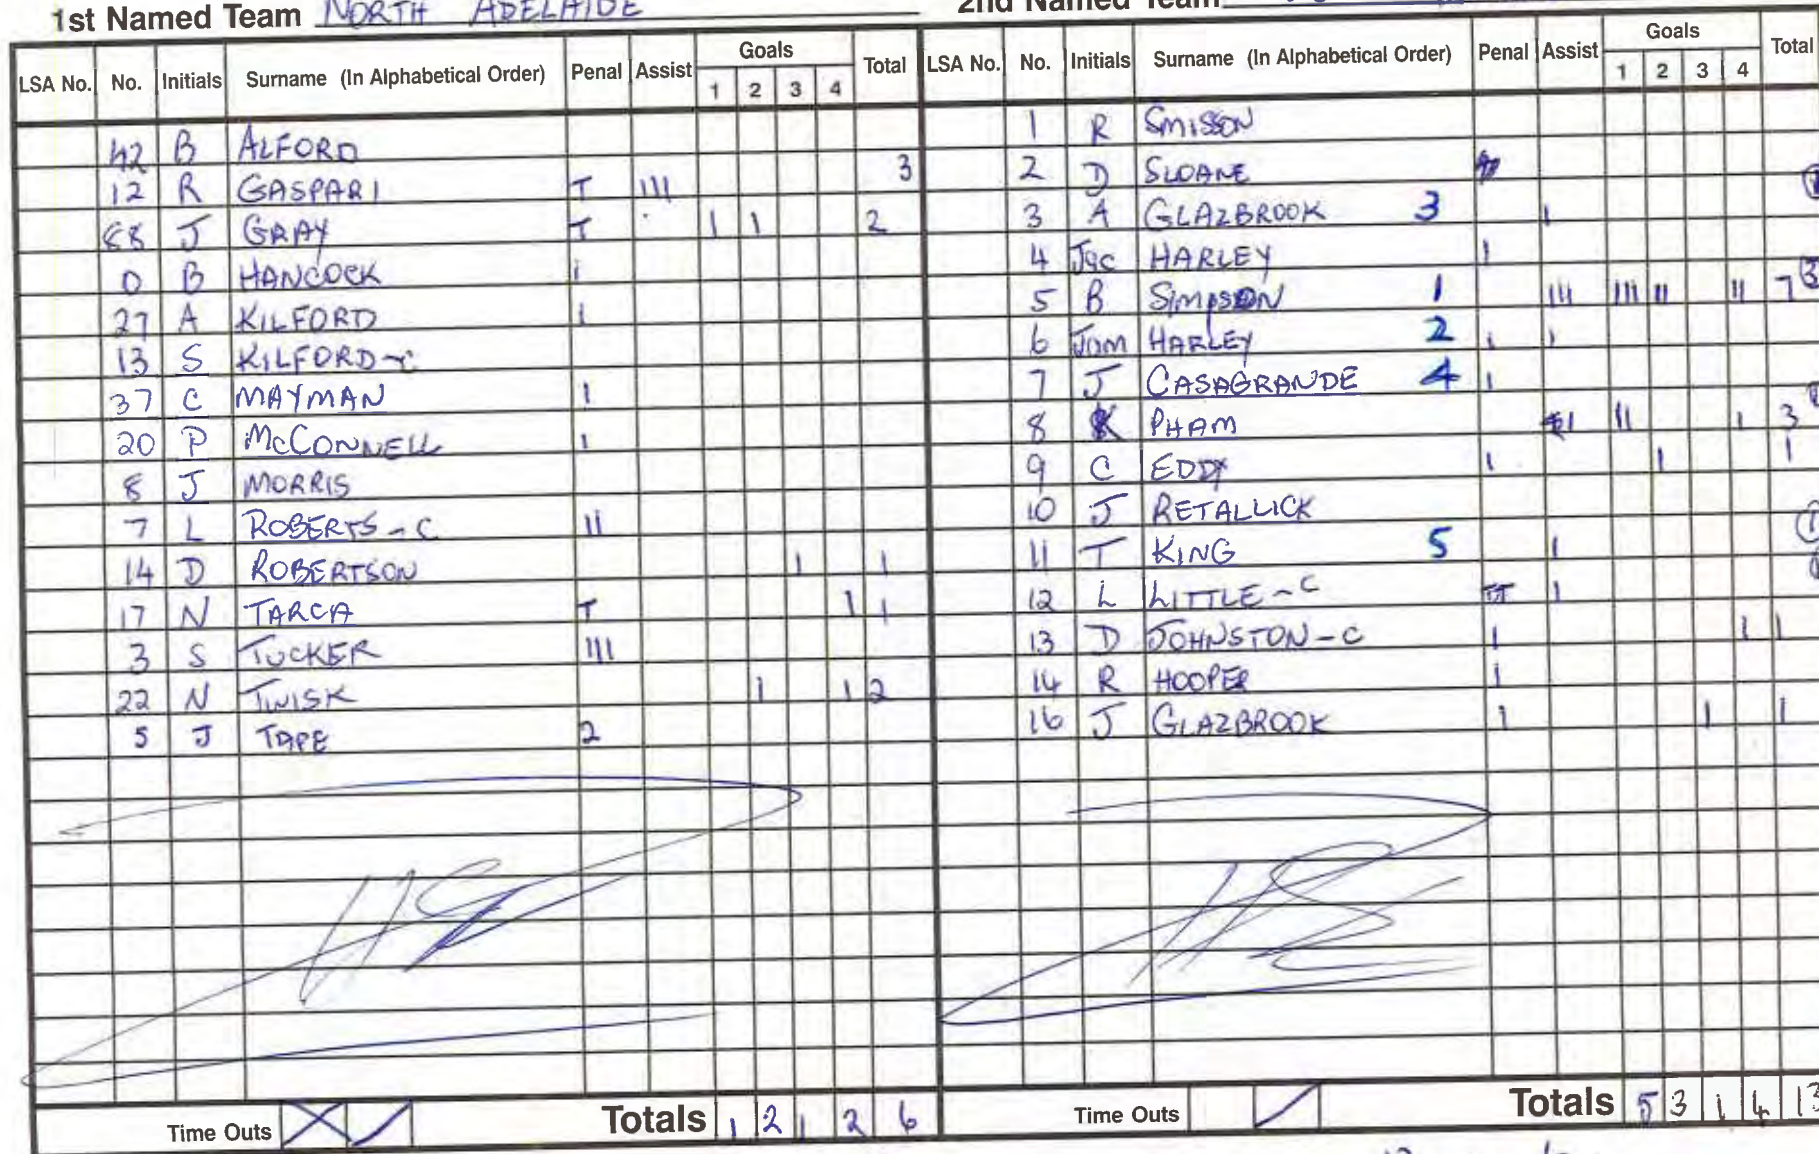 1st Named Team NORTH ADELAIDE
2nd Named Team
LSA No. No. Initials Surname (In Alphabetical Order) Penal Assist Goals 1 2 3 4 Total
42 B ALFORD
12 R GASPARI T III 3
88 J GRAY T 1 1 2
0 B HANCOCK I
27 A KILFORD I
13 S KILFORD-C
37 C MAYMAN I
20 P McCONNELL I
8 J MORRIS
7 L ROBERTS-C II
14 D ROBERTSON 1 1
17 N TARCA T 1 1
3 S TUCKER III
22 N TWISK 1 1 2
5 J TAPE 2
Time Outs Totals 1 2 1 2 6
LSA No. No. Initials Surname (In Alphabetical Order) Penal Assist Goals 1 2 3 4 Total
1 R SMISSON
2 D SLOANE
3 A GLAZBROOK 3 I
4 Jac HARLEY I
5 B SIMPSON 1 III III II II 7
6 Jam HARLEY 2 I I
7 J CASAGRANDE 4 I
8 K PHAM I II I 3
9 C EDDY I I 1
10 J RETALLICK
11 T KING 5 I
12 L LITTLE-C I
13 D JOHNSTON-C I I 1
14 R HOOPER I
16 J GLAZBROOK I I 1
Time Outs Totals 5 3 1 4 13